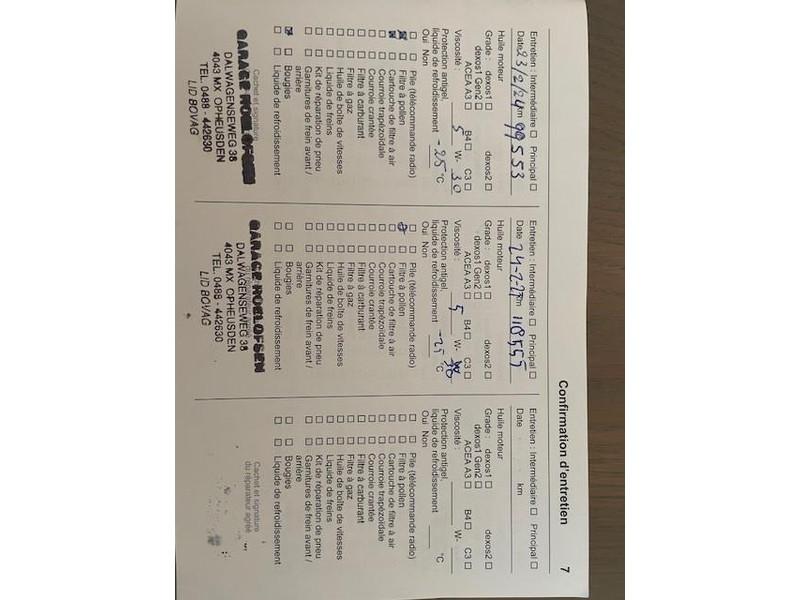 Confirmation d'entretien 7
Entretien : Intermédiaire ☐ Principal ☐
Date 23/2/24 km 99553
Huile moteur
Grade : dexos1 ☐ dexos2 ☐
dexos1 Gen2 ☐
ACEA A3 ☐ B4 ☐ C3 ☐
Viscosité : 5 W- 30
Protection antigel,
liquide de refroidissement -25 °C
Oui Non
☐ ☐ Pile (télécommande radio)
☒ ☐ Filtre à pollen
☒ ☐ Cartouche de filtre à air
☐ ☐ Courroie trapézoïdale
☐ ☐ Courroie crantée
☐ ☐ Filtre à carburant
☐ ☐ Filtre à gaz
☐ ☐ Huile de boîte de vitesses
☐ ☐ Liquide de freins
☐ ☐ Kit de réparation de pneu
☐ ☐ Garnitures de frein avant /
arrière
☒ ☐ Bougies
☐ ☐ Liquide de refroidissement
Cachet et signature
GARAGE ROELOFSEN
DALWAGENSEWEG 38
4043 MX OPHEUSDEN
TEL. 0488 - 442630
LID BOVAG
Entretien : Intermédiaire ☐ Principal ☐
Date km 118555
Huile moteur
Grade : dexos1 ☐ dexos2 ☐
dexos1 Gen2 ☐
ACEA A3 ☐ B4 ☐ C3 ☐
Viscosité : 5 W- 30
Protection antigel,
liquide de refroidissement -25 °C
Oui Non
☐ ☐ Pile (télécommande radio)
☒ ☐ Filtre à pollen
☐ ☐ Cartouche de filtre à air
☐ ☐ Courroie trapézoïdale
☐ ☐ Courroie crantée
☐ ☐ Filtre à carburant
☐ ☐ Filtre à gaz
☐ ☐ Huile de boîte de vitesses
☐ ☐ Liquide de freins
☐ ☐ Kit de réparation de pneu
☐ ☐ Garnitures de frein avant /
arrière
☐ ☐ Bougies
☐ ☐ Liquide de refroidissement
GARAGE ROELOFSEN
DALWAGENSEWEG 38
4043 MX OPHEUSDEN
TEL. 0488 - 442630
LID BOVAG
Entretien : Intermédiaire ☐ Principal ☐
Date km
Huile moteur
Grade : dexos1 ☐ dexos2 ☐
dexos1 Gen2 ☐
ACEA A3 ☐ B4 ☐ C3 ☐
Viscosité : W-
Protection antigel,
liquide de refroidissement °C
Oui Non
☐ ☐ Pile (télécommande radio)
☐ ☐ Filtre à pollen
☐ ☐ Cartouche de filtre à air
☐ ☐ Courroie trapézoïdale
☐ ☐ Courroie crantée
☐ ☐ Filtre à carburant
☐ ☐ Filtre à gaz
☐ ☐ Huile de boîte de vitesses
☐ ☐ Liquide de freins
☐ ☐ Kit de réparation de pneu
☐ ☐ Garnitures de frein avant /
arrière
☐ ☐ Bougies
☐ ☐ Liquide de refroidissement
Cachet et signature
du réparateur agréé